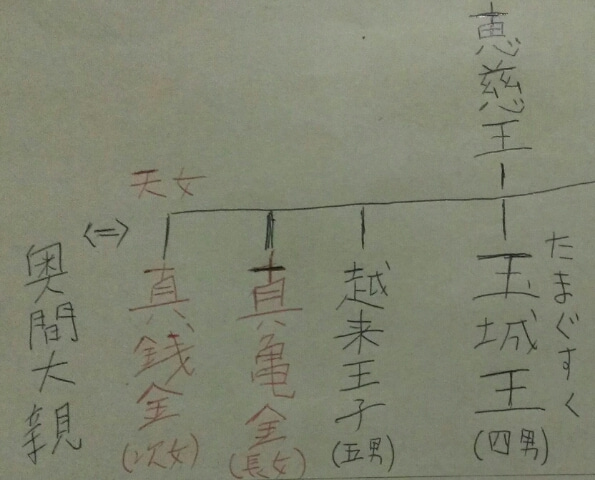 恵慈王
たまぐすく
玉城王
(四男)
越来王子
(五男)
真亀金
(長女)
天女
真銭金
(次女)
<=>
奥間大親